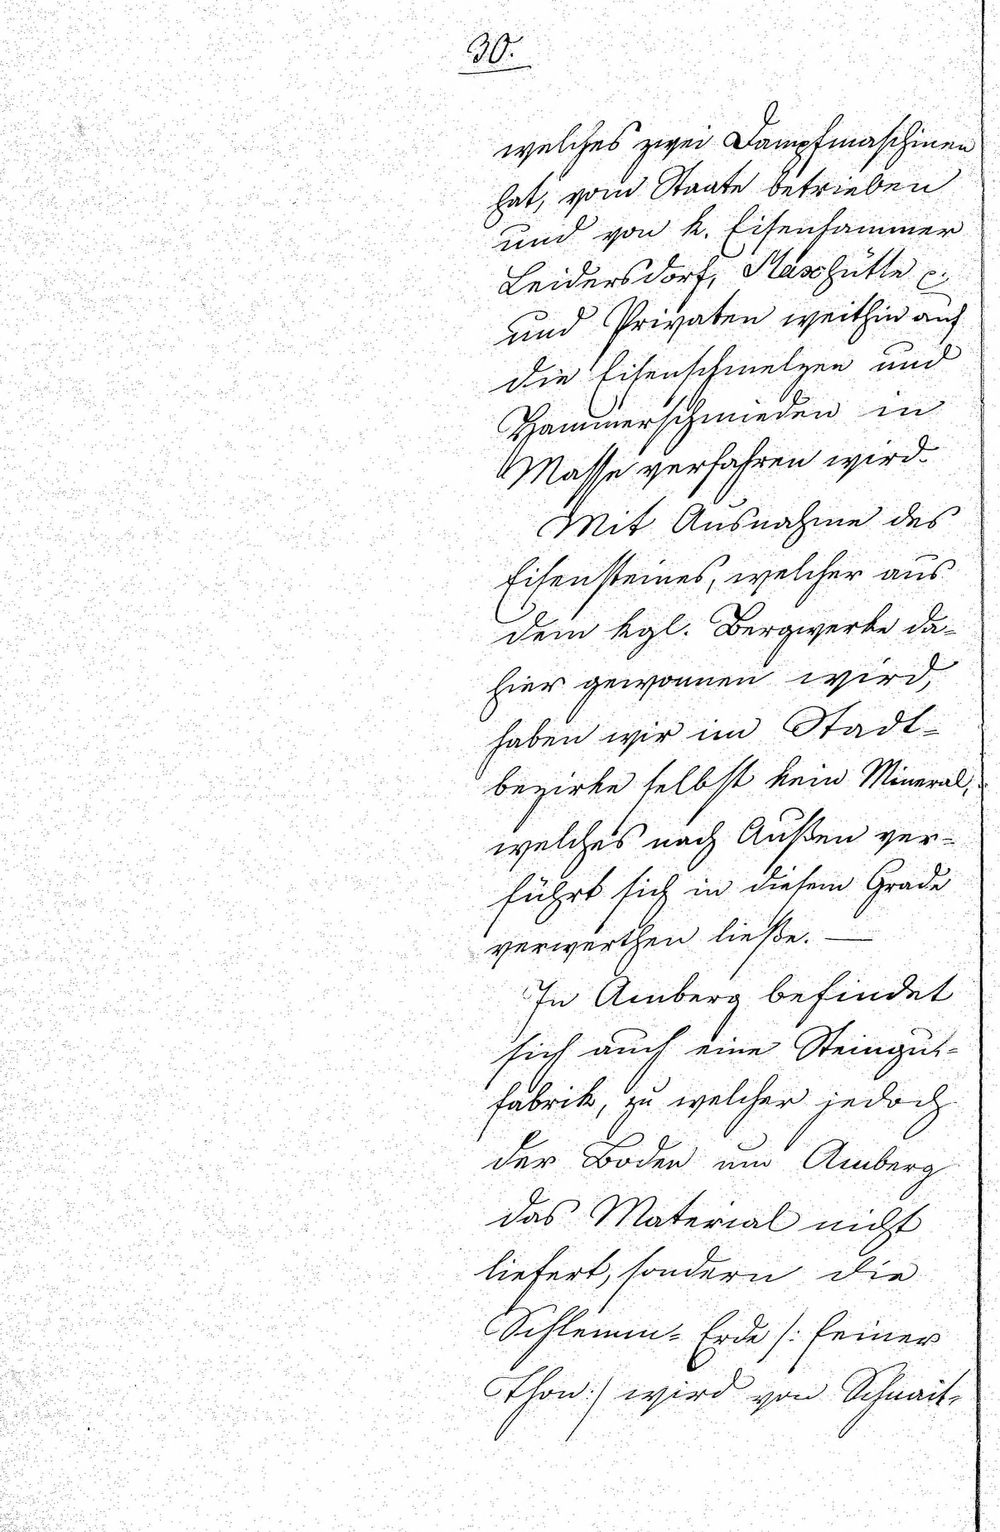 30.
welches zwei Dampfmaschinen
hat, vom Staate betrieben
und von k. Eisenhammer
Leidersdorf, Maxhütte c.
und Privaten weithin auf
die Eisenschmelzen und
Hammerschmieden in
Masse verfahren wird.
Mit Ausnahme des
Eisensteines, welcher aus
dem kgl. Bergwerke da-
hier gewonnen wird,
haben wir im Stadt-
bezirke selbst kein Mineral,
welches nach Außen ver-
führt sich in diesem Grade
verwerthen ließe. —
In Amberg befindet
sich auch eine Steingut-
fabrik, zu welcher jedoch
der Boden um Amberg
das Material nicht
liefert, sondern die
Schlemm- Erde /: feiner
Thon :/ wird von Schnait-